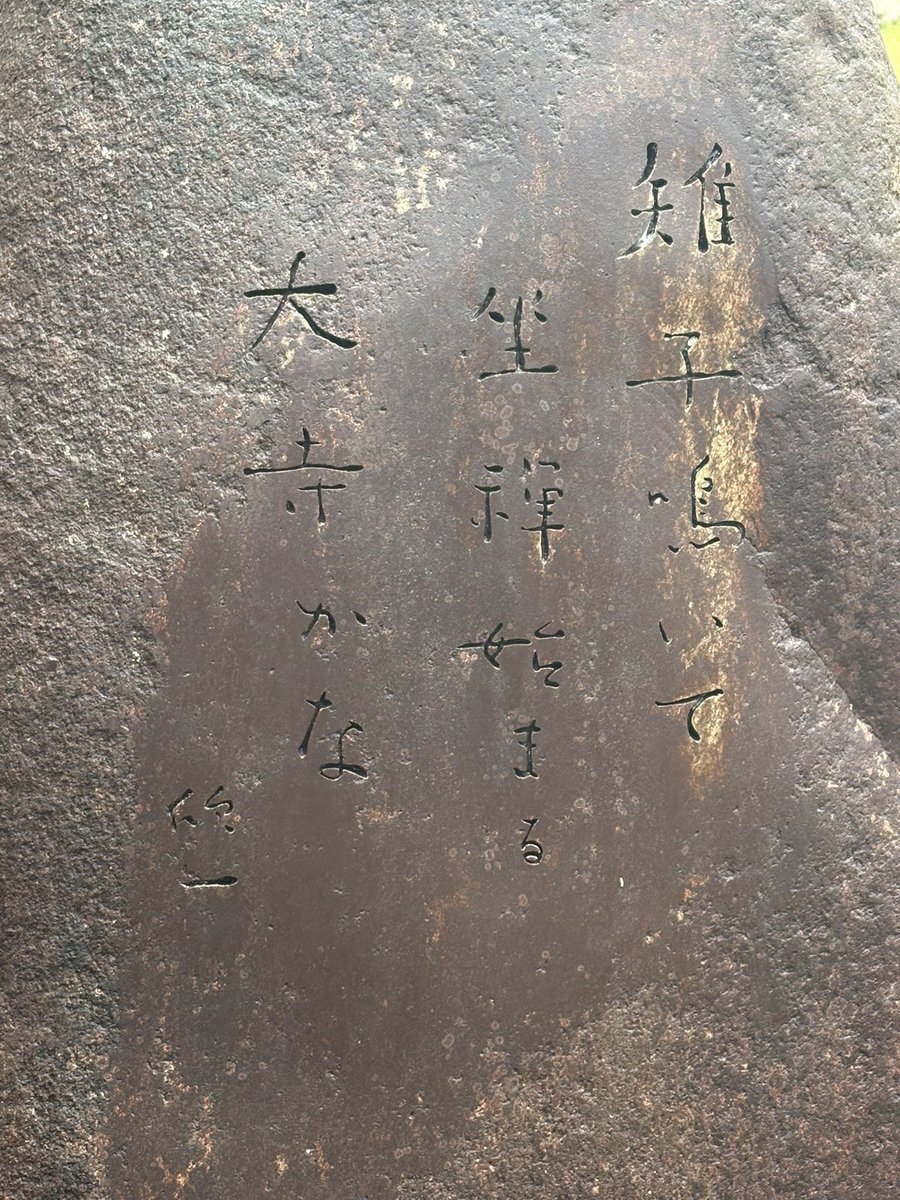 雉子鳴いて
坐禅始まる
大寺かな